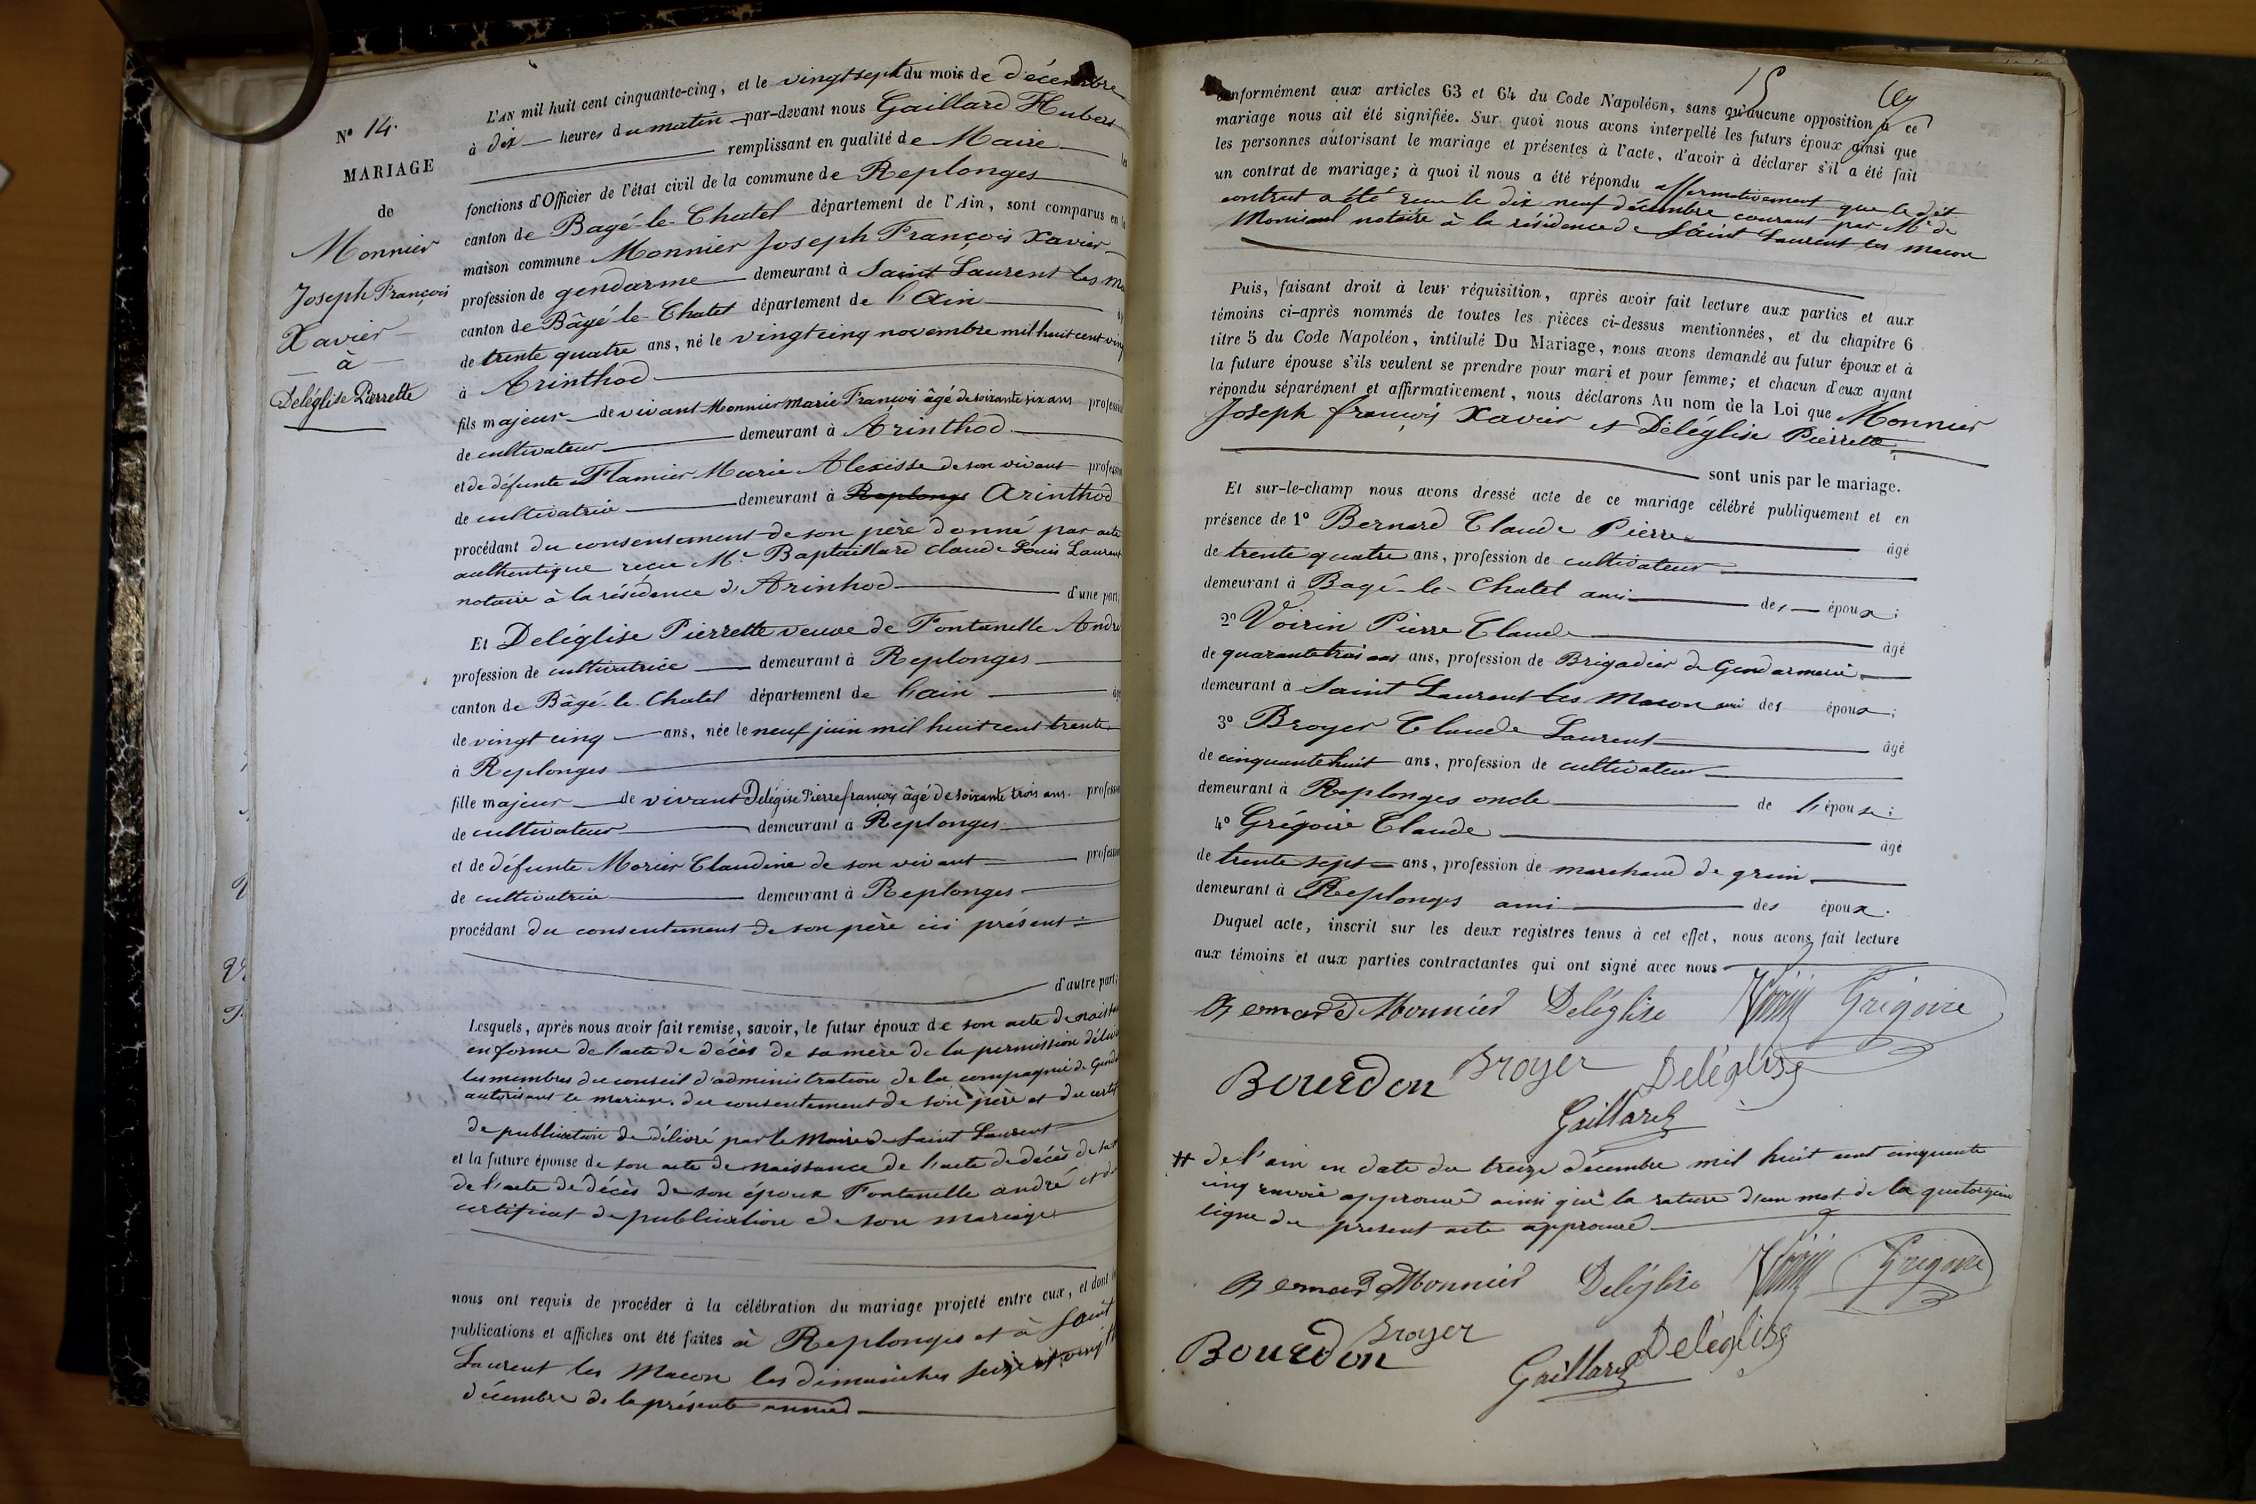 N° 14.
MARIAGE
de
Monnier
Joseph François
Xavier
à
Deléglise Pierrette
L'AN mil huit cent cinquante-cinq, et le vingt sept du mois de décembre
à dix heures du matin par-devant nous Gaillard Hubert
remplissant en qualité de Maire
fonctions d'Officier de l'état civil de la commune de Replonges
canton de Bagé-le-Chatel département de l'Ain, sont comparus en
maison commune Monnier Joseph François Xavier
profession de gendarme demeurant à Saint Laurent les
canton de Bâgé-le-Chatel département de l'Ain
de trente quatre ans, né le vingt cinq novembre mil huit cent
à Arinthod
fils majeur de vivant Monnier Marie François âgé de soixante six ans
de cultivateur demeurant à Arinthod
et de défunte Flamier Marie Alexisse de son vivant
de cultivatrice demeurant à Replonge Arinthod
procédant du consentement de son père donné par acte
authentique reçu Me Baptaillard Claude Louis Laurent
notaire à la résidence d'Arinhod d'une part,
Et Deléglise Pierrette veuve de Fontanelle André
profession de cultivatrice demeurant à Replonges
canton de Bâgé-le-Chatel département de l'ain
de vingt cinq ans, née le neuf juin mil huit cent trente
à Replonges
fille majeur de vivant Delégise Pierre françois âgé de soixante trois ans
de cultivateur demeurant à Replonges
et de défunte Morier Claudine de son vivant
de cultivatrice demeurant à Replonges
procédant du consentement de son père ici présent
d'autre part;
Lesquels, après nous avoir fait remise, savoir, le futur époux de son acte de
en forme de l'acte de décès de sa mère de la permission
les membres du conseil d'administration de la compagnie de
autorisant le mariage, du consentement de son père et du
de publication de délivré par le Maire de Saint Laurent
et la future épouse de son acte de naissance de l'acte de décès de
de l'acte de décès de son époux Fontanelle andré et
certificat de publication de son mariage
nous ont requis de procéder à la célébration du mariage projeté entre eux, et dont
publications et affiches ont été faites à Replonges et à Saint
Laurent les Macon les dimanches seize et
décembre de la présente année
15
conformément aux articles 63 et 64 du Code Napoléon, sans qu'aucune opposition à ce
mariage nous ait été signifiée. Sur quoi nous avons interpellé les futurs époux ainsi que
les personnes autorisant le mariage et présentes à l'acte, d'avoir à déclarer s'il a été fait
un contrat de mariage; à quoi il nous a été répondu affirmativement que le dit
contrat a été reçu le dix neuf décembre courant par Me de
notaire à la résidence de Saint Laurent les Macon
Puis, faisant droit à leur réquisition, après avoir fait lecture aux parties et aux
témoins ci-après nommés de toutes les pièces ci-dessus mentionnées, et du chapitre 6
titre 5 du Code Napoléon, intitulé Du Mariage, nous avons demandé au futur époux et à
la future épouse s'ils veulent se prendre pour mari et pour femme; et chacun d'eux ayant
répondu séparément et affirmativement, nous déclarons Au nom de la Loi que Monnier
Joseph françois Xavier et Déléglise Pierrette
sont unis par le mariage.
Et sur-le-champ nous avons dressé acte de ce mariage célébré publiquement et en
présence de 1° Bernard Claude Pierre âgé
de trente quatre ans, profession de cultivateur
demeurant à Bagé-le-Chatel ami des époux;
2° Voirin Pierre Claude âgé
de quarante trois ans ans, profession de Brigadier de Gendarmerie
demeurant à Saint Laurent les Macon ami des époux;
3° Broyer Claude Laurent âgé
de cinquante huit ans, profession de cultivateur
demeurant à Replonges oncle de l'épouse;
4° Grégoire Claude âgé
de trente sept ans, profession de marchand de grain
demeurant à Replonges ami des époux.
Duquel acte, inscrit sur les deux registres tenus à cet effet, nous avons fait lecture
aux témoins et aux parties contractantes qui ont signé avec nous
Bernard Monnier Deléglise Voirin Grégoire
Bourdon Broyer Deléglise
Gaillard
# de l'ain en date du treize décembre mil huit cent cinquante
cinq renvoie approuvé ainsi que la rature d'un mot de la quatorzième
ligne du présent acte approuvé
Bernard Monnier Deléglise Voirin Grégoire
Bourdon Broyer Deléglise
Gaillard